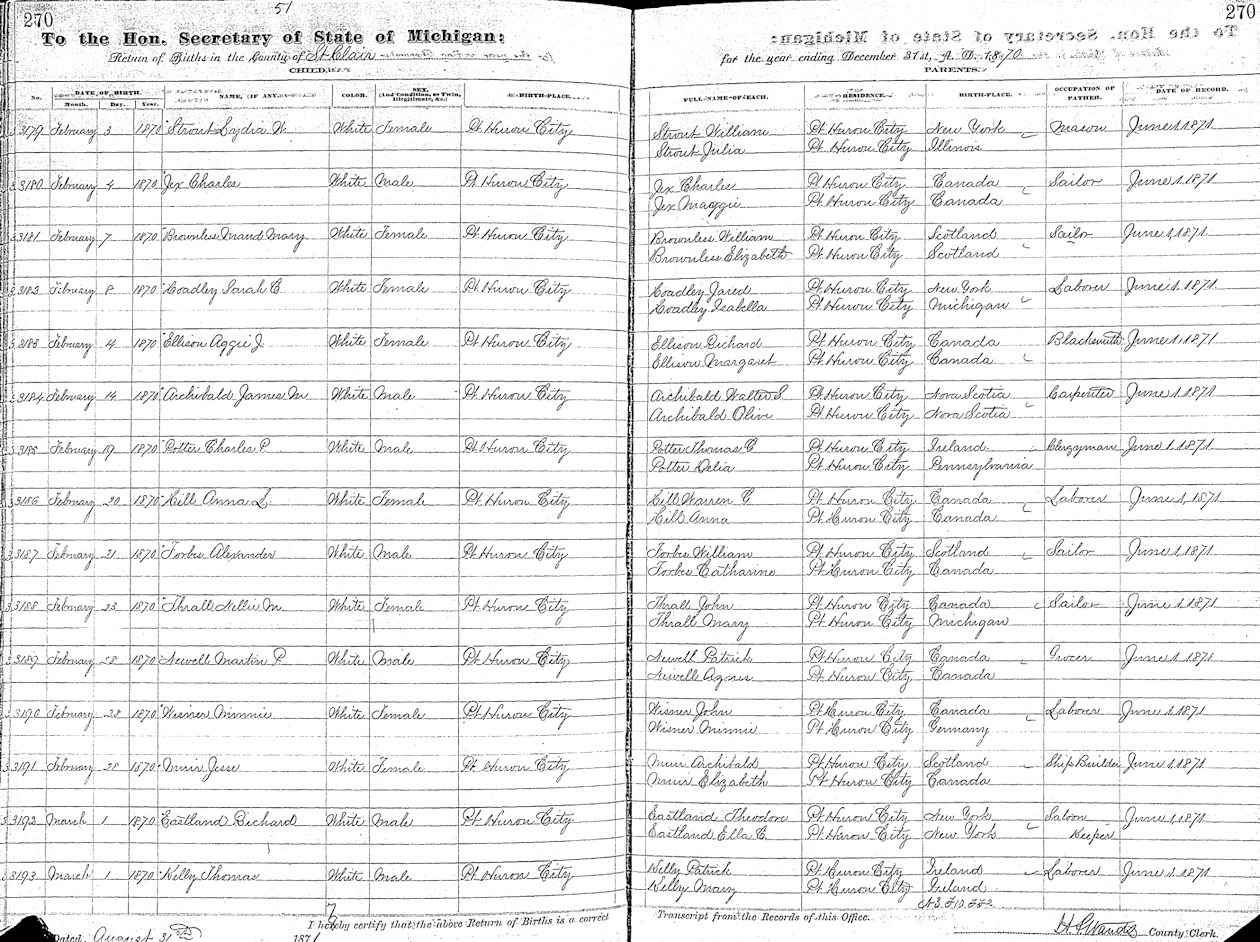 270
51
To the Hon. Secretary of State of Michigan:
Return of Births in the County of St Clair
CHILDREN
No. DATE OF BIRTH. Month. Day. Year. NAME, (IF ANY. COLOR. SEX, (And Condition, as Twin, Illegitimate, &c.) BIRTH-PLACE.
3179 February 3 1870 Strout Lydia W. White Female Pt Huron City
3180 February 4 1870 Jex Charles White Male Pt Huron City
3181 February 7 1870 Brownless Maud Mary White Female Pt Huron City
3182 February 8 1870 Hoadley Sarah C White Female Pt Huron City
3183 February 4 1870 Ellison Aggie J. White Female Pt Huron City
3184 February 14 1870 Archibald James M White Male Pt Huron City
3185 February 19 1870 Potter Charles P. White Male Pt Huron City
3186 February 20 1870 Hill Anna L. White Female Pt Huron City
3187 February 21 1870 Forbes Alexander White Male Pt Huron City
3188 February 23 1870 Thrall Nellie M White Female Pt Huron City
3189 February 28 1870 Newell Martin P White Male Pt Huron City
3190 February 28 1870 Wisner Minnie White Female Pt Huron City
3191 February 28 1870 Muir Jesse White Female Pt Huron City
3192 March 1 1870 Eastland Richard White Male Pt Huron City
3193 March 1 1870 Kelly Thomas White Male Pt Huron City
I hereby certify that the above Return of Births is a correct
Dated August 31st 1871
270
for the year ending December 31st, A. D. 1870
PARENTS.
FULL NAME OF EACH. RESIDENCE. BIRTH-PLACE. OCCUPATION OF FATHER. DATE OF RECORD.
Strout William Pt Huron City New York Mason June 1, 1871
Strout Julia Pt Huron City Illinois
Jex Charles Pt Huron City Canada Sailor June 1, 1871
Jex Maggie Pt Huron City Canada
Brownless William Pt Huron City Scotland Sailor June 1, 1871
Brownless Elizabeth Pt Huron City Scotland
Hoadley Jared Pt Huron City New York Laborer June 1, 1871
Hoadley Isabella Pt Huron City Michigan
Ellison Richard Pt Huron City Canada Blacksmith June 1, 1871
Ellison Margaret Pt Huron City Canada
Archibald Walter S Pt Huron City Nova Scotia Carpenter June 1, 1871
Archibald Olive Pt Huron City Nova Scotia
Potter Thomas G Pt Huron City Ireland Clergyman June 1, 1871
Potter Delia Pt Huron City Pennsylvania
Hill Warren G Pt Huron City Canada Laborer June 1, 1871
Hill Anna Pt Huron City Canada
Forbes William Pt Huron City Scotland Sailor June 1, 1871
Forbes Catharine Pt Huron City Canada
Thrall John Pt Huron City Canada Sailor June 1, 1871
Thrall Mary Pt Huron City Michigan
Newell Patrick Pt Huron City Canada Grocer June 1, 1871
Newell Agnes Pt Huron City Canada
Wisner John Pt Huron City Canada Laborer June 1, 1871
Wisner Minnie Pt Huron City Germany
Muir Archibald Pt Huron City Scotland Ship Builder June 1, 1871
Muir Elizabeth Pt Huron City Canada
Eastland Theodore Pt Huron City New York Saloon June 1, 1871
Eastland Ella C. Pt Huron City New York Keeper
Kelly Patrick Pt Huron City Ireland Laborer June 1, 1871
Kelly Mary Pt Huron City Ireland
Transcript from the Records of this Office.
County Clerk.